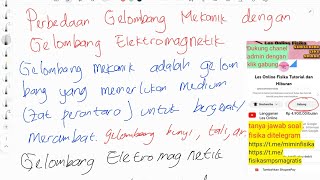 Perbedaan Gelombang Mekanik dengan
Gelombang Elektromagnetik
Gelombang mekanik adalah gelom
bang yang memerlukan medium
(zat perantara) untuk bergerak/
merambat. gelombang bunyi, tali, air
Gelombang Elektromagnetik
Dukung chanel
admin dengan
klik gabung
Les Online Fisika Tutorial dan
Hiburan
Gabung
Langganan
Les Online
tanya jawab soal
fisika ditelegram
https://t.me/miminfisika
https://t.me/
fisikasmpsmagratis